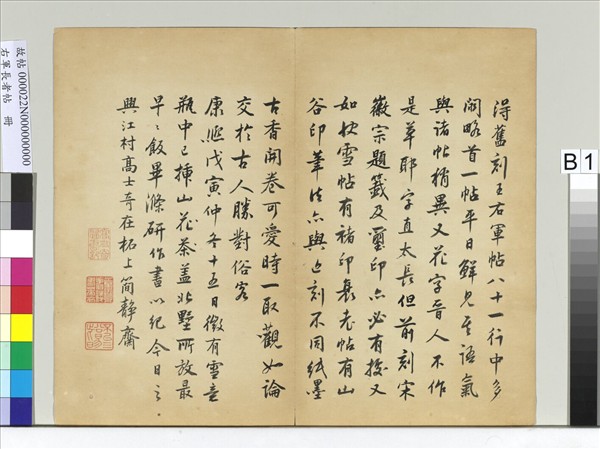 得舊刻王右軍帖八十一行中多
闕略首一帖平日鮮見其語氣
與諸帖稍異又花字晉人不作
是草耶字直太長但前刻宋
徽宗題籤及璽印亦必有據又
如快雪帖有褚印裒老帖有山
谷印筆法亦與近刻不同紙墨
古香開卷可愛時一取觀如論
交於古人勝對俗客
康熙戊寅仲冬十五日微有雪意
瓶中已插山茶蓋北墅所放最
早早飯畢滌研作書以紀今日之
興江村高士奇在柘上簡靜齋
故帖 000022N000000000
右軍長者帖 冊
B1